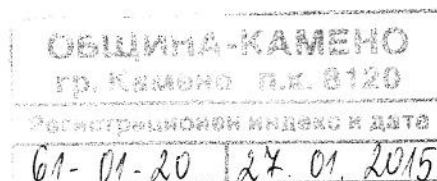 ОБЩИНА-КАМЕНО
гр. Камено п.к. 8120
Регистрационен индекс и дата
61-01-20 27.01.2015